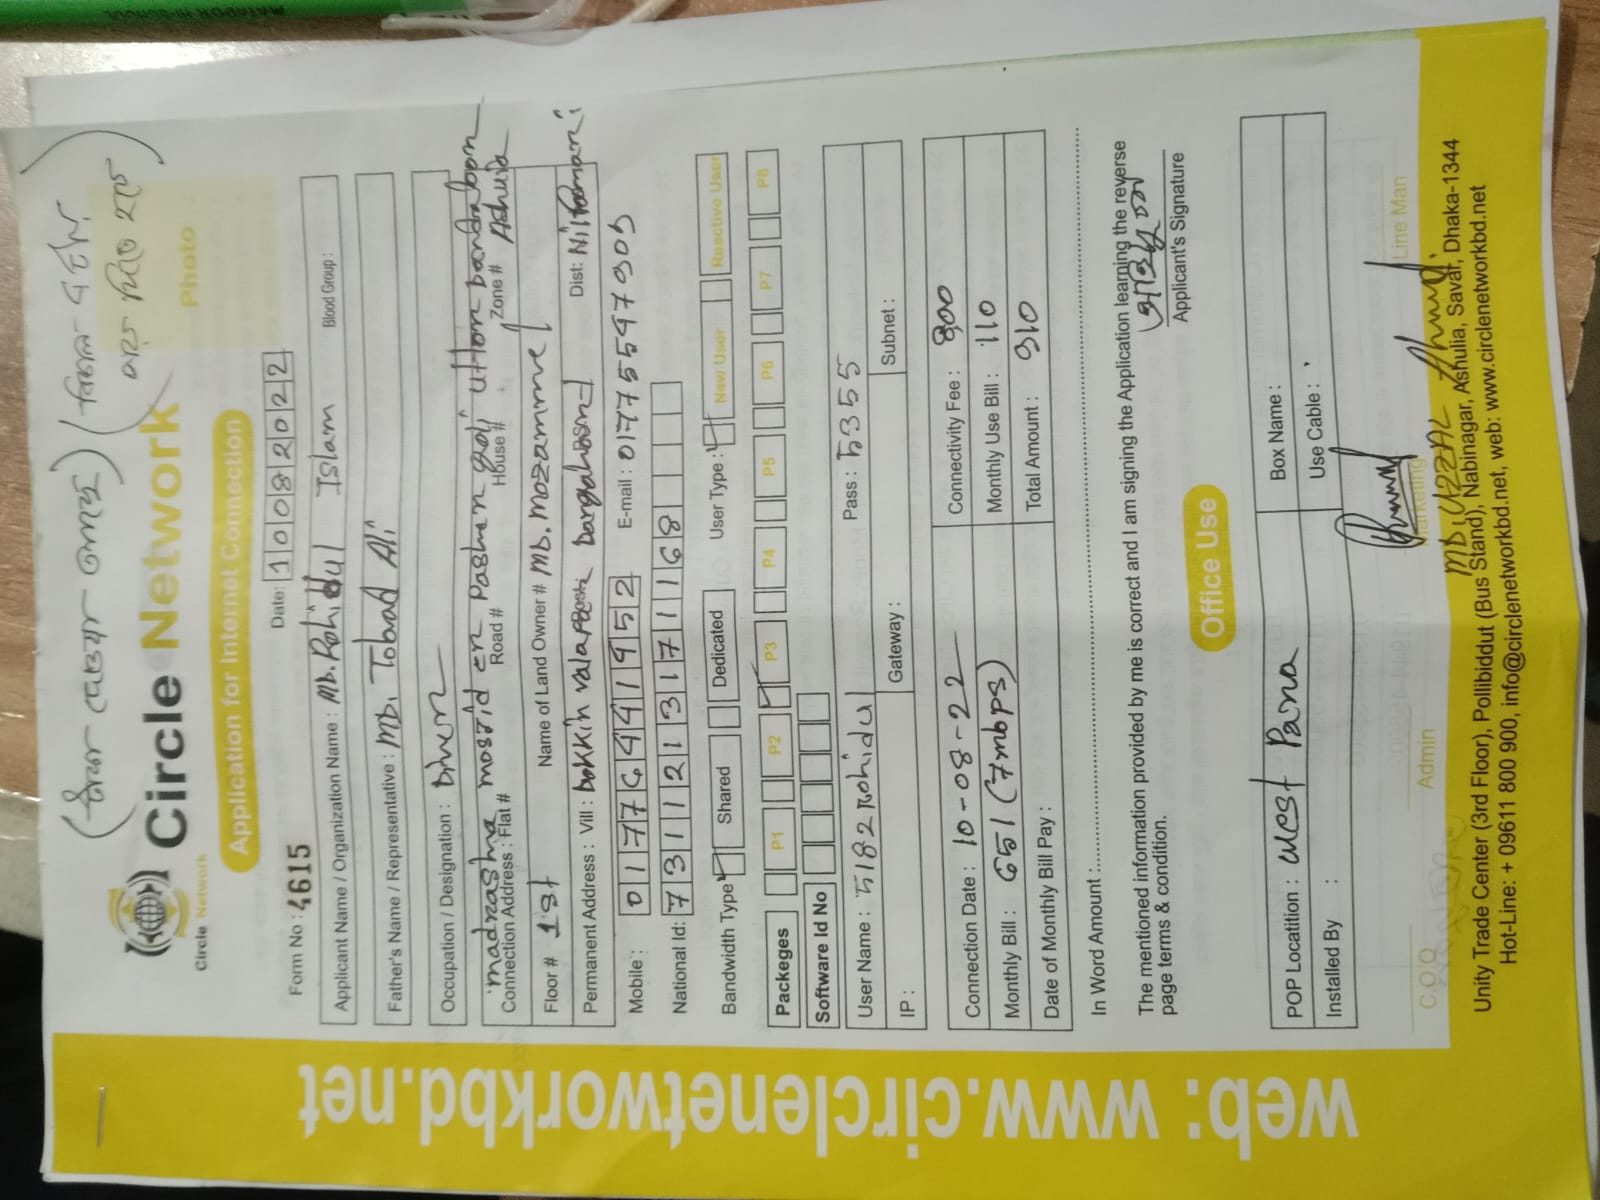 MATADOR HI-SCHOOL
Circle Network
Circle Network
Photo
Application for Internet Connection
Form No : 4615
Date: 10082022
Applicant Name / Organization Name : MD. Rohidul Islam Blood Group :
Father's Name / Representative : MD. Tobad Ali
Occupation / Designation : Driver
madrasha mosjid er Pasher goli uttor bandaboom
Connection Address : Flat # Road # House # Zone # Ashulia
Floor # 1st Name of Land Owner # MD. Mozammel
Permanent Address : Vill : Dokkin Dist: Nilfamari
Mobile : 01776441952 E-mail : 01775597905
National Id: 7311213171168
Bandwidth Type Shared Dedicated User Type : New User Reactive User
Packeges P1 P2 P3 P4 P5 P6 P7 P8
Software Id No
User Name : 5182Rohidul Pass : 5355
IP : Gateway : Subnet :
Connection Date : 10-08-22 Connectivity Fee : 800
Monthly Bill : 651 (7mbps) Monthly Use Bill : 110
Date of Monthly Bill Pay : Total Amount : 910
In Word Amount :
The mentioned information provided by me is correct and I am signing the Application learning the reverse
page terms & condition.
Applicant's Signature
Office Use
POP Locatition : West Para Box Name :
Installed By : Use Cable :
C.O.O Admin Marketing Line Man
Unity Trade Center (3rd Floor), Pollibiddut (Bus Stand), Nabinagar, Ashulia, Savar, Dhaka-1344
Hot-Line: + 09611 800 900, info@circlenetworkbd.net, web: www.circlenetworkbd.net
web: www.circlenetworkbd.net